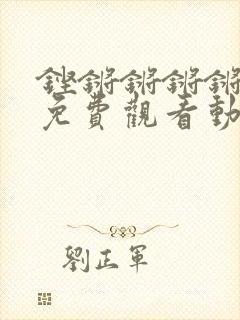 鏗鏘鏘鏘鏘
免費觀看動
劉正軍